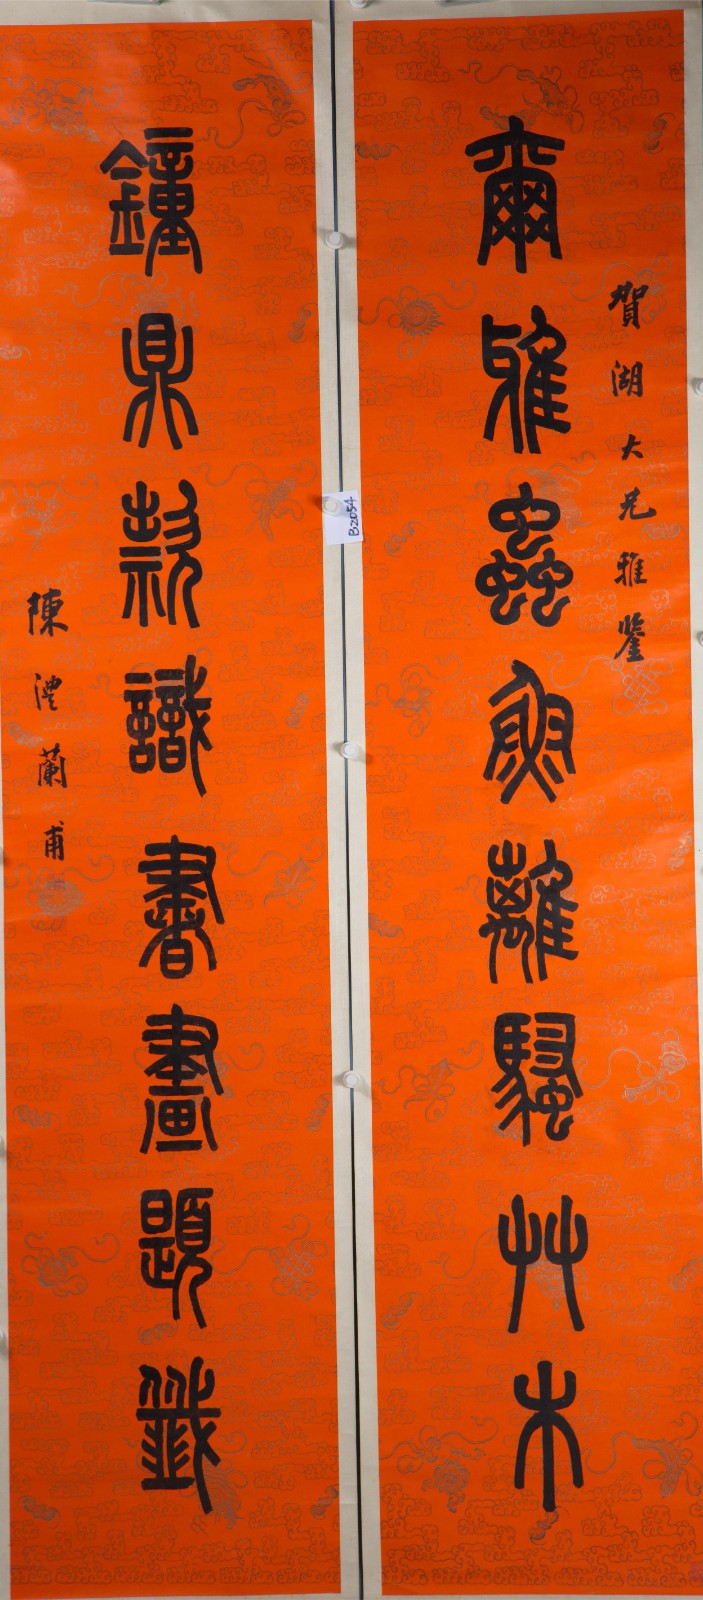 賀湖大兄雅鑒
爾雅蟲魚離騷艸木
鐘鼎款識書畫題籤
陳澧蘭甫
B2054